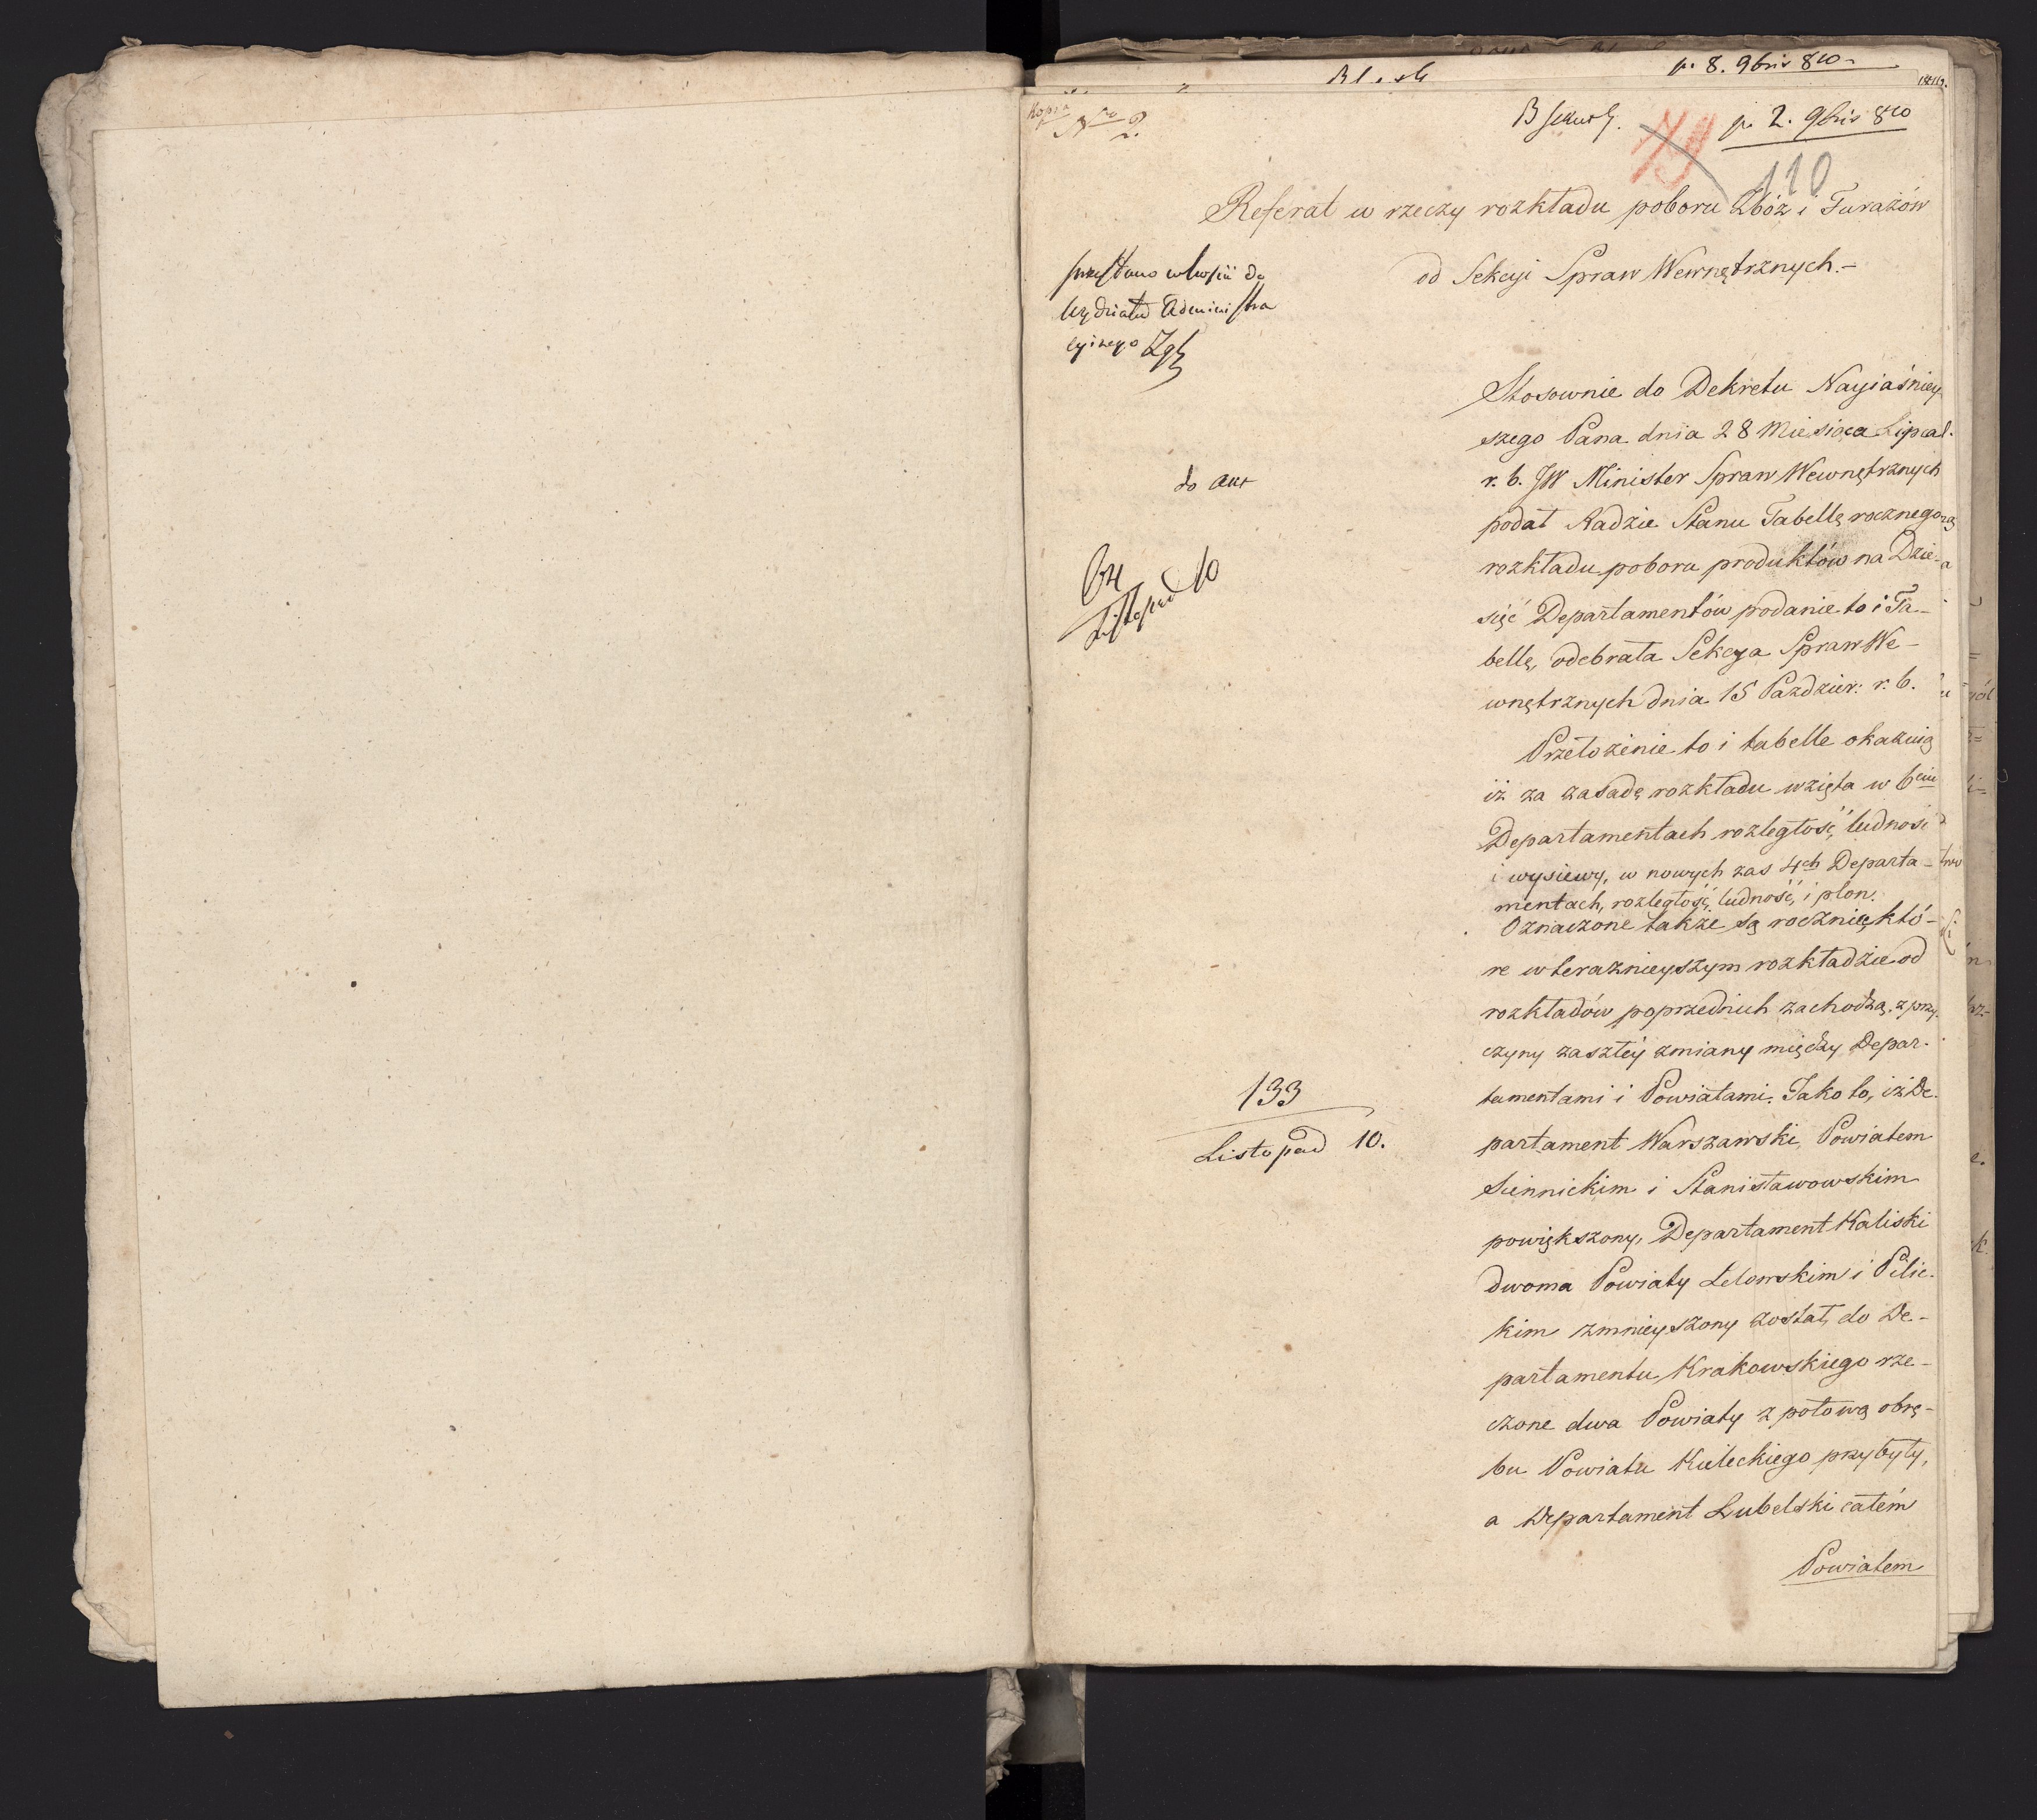 p. 8. 9bris 810
Kopia
Nro 2.
p. 2. 9bris 810
79
110
Referat w rzeczy rozkładu poboru Zbóż i Furażów
od Sekcyi Spraw Wewnętrznych.-
do
Wydziału Administra
cyinego
do akt
Listopad 10
133
Listopad 10.
Stosownie do Dekretu Nayiaśniey
szego Pana dnia 28 Miesiąca Lipca
r. b. JW Minister Spraw Wewnętrznych
podał Radzie Stanu Tabellę rocznego
rozkładu poboru produktów na Dzie-
sięć Departamentów podanie to i Ta-
bellę, odebrała Sekcya Spraw We-
wnętrznych dnia 15 Paździer: r. b.
Przełożenie to i tabelle okazuią
iż za zasadę rozkładu wzięta w 6ciu
Departamentach rozległość, ludność
i wysiewy, w nowych zas 4ch Departa-
mentach, rozległość, ludność, i plon.
Oznaczone także są rocznię, któ-
re w teraznieyszym rozkładzie od
rozkładów poprzednich zachodzą, z przy-
czyny zaszłéy zmiany między Depar-
tamentami i Powiatami. Jako to, iż De-
partament Warszawski, Powiatem
Siennickim i Stanisławowskim
powiększony, Departament Kaliski
dwoma Powiaty Lelowskim i Pilic-
kim zmnieyszony został, do De-
partamentu Krakowskiego rze-
czone dwa Powiaty z połową obrę-
bu Powiatu Kieleckiego przybyły,
a Departament Lubelski całém
Powiatem